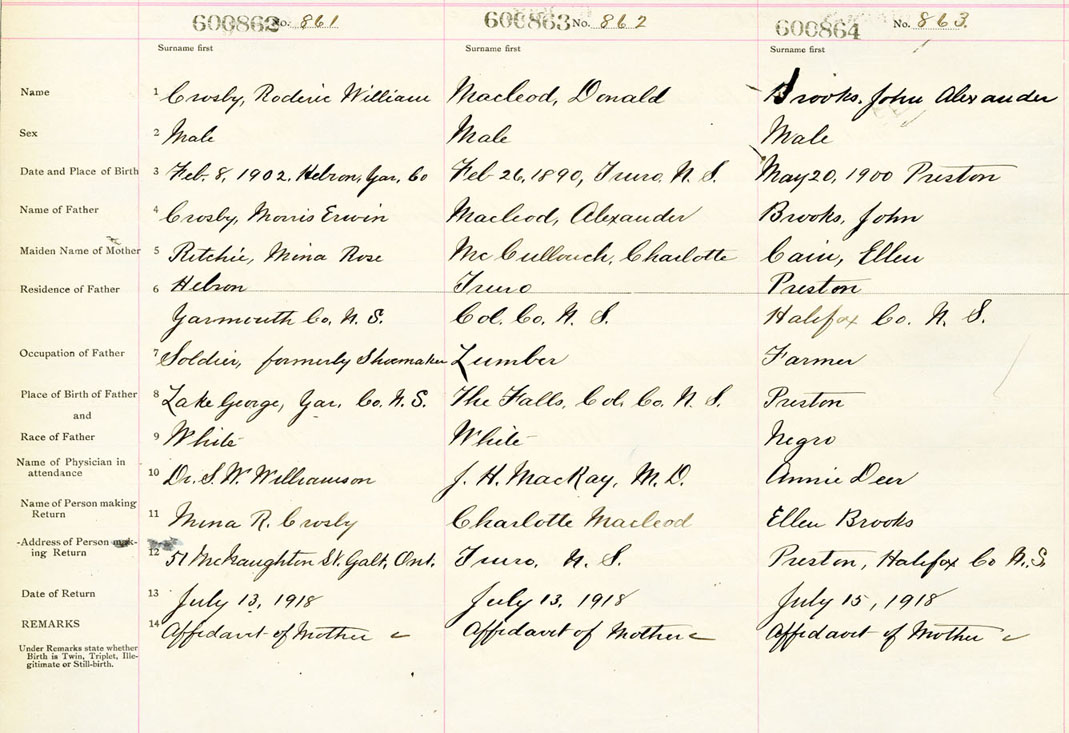 600862 No. 861 600863 No. 862 600864 No. 863.
Surname first Surname first Surname first
Name 1 Crosby, Roderic William Macleod, Donald Brooks, John Alexander
Sex 2 Male Male Male
Date and Place of Birth 3 Feb. 8, 1902, Hebron, Yar. Co Feb 26, 1890, Truro, N. S. May 20, 1900 Preston
Name of Father 4 Crosby, Morris Erwin Macleod, Alexander Brooks, John
Maiden Name of Mother 5 Ritchie, Mina Rose McCullouch, Charlotte Cain, Ellen
Residence of Father 6 Hebron Truro Preston
Yarmouth Co. N. S. Col. Co. N. S. Halifax Co. N. S.
Occupation of Father 7 Soldier, formerly Shoemaker Lumber Farmer
Place of Birth of Father 8 Lake George, Yar. Co. N. S. The Falls, Col. Co. N. S. Preston
and
Race of Father 9 White White Negro
Name of Physician in
attendance 10 Dr. S. W. Williamson J. H. MacKay, M. D. Annie Deer
Name of Person making
Return 11 Mina R. Crosby Charlotte Macleod Ellen Brooks
Address of Person mak-
ing Return 12 51 McNaughton St. Galt, Ont. Truro, N. S. Preston, Halifax Co N. S.
Date of Return 13 July 13, 1918 July 13, 1918 July 15, 1918
REMARKS 14 Affidavit of Mother Affidavit of Mother Affidavit of Mother
Under Remarks state whether
Birth is Twin, Triplet, Ille-
gitimate or Still-birth.